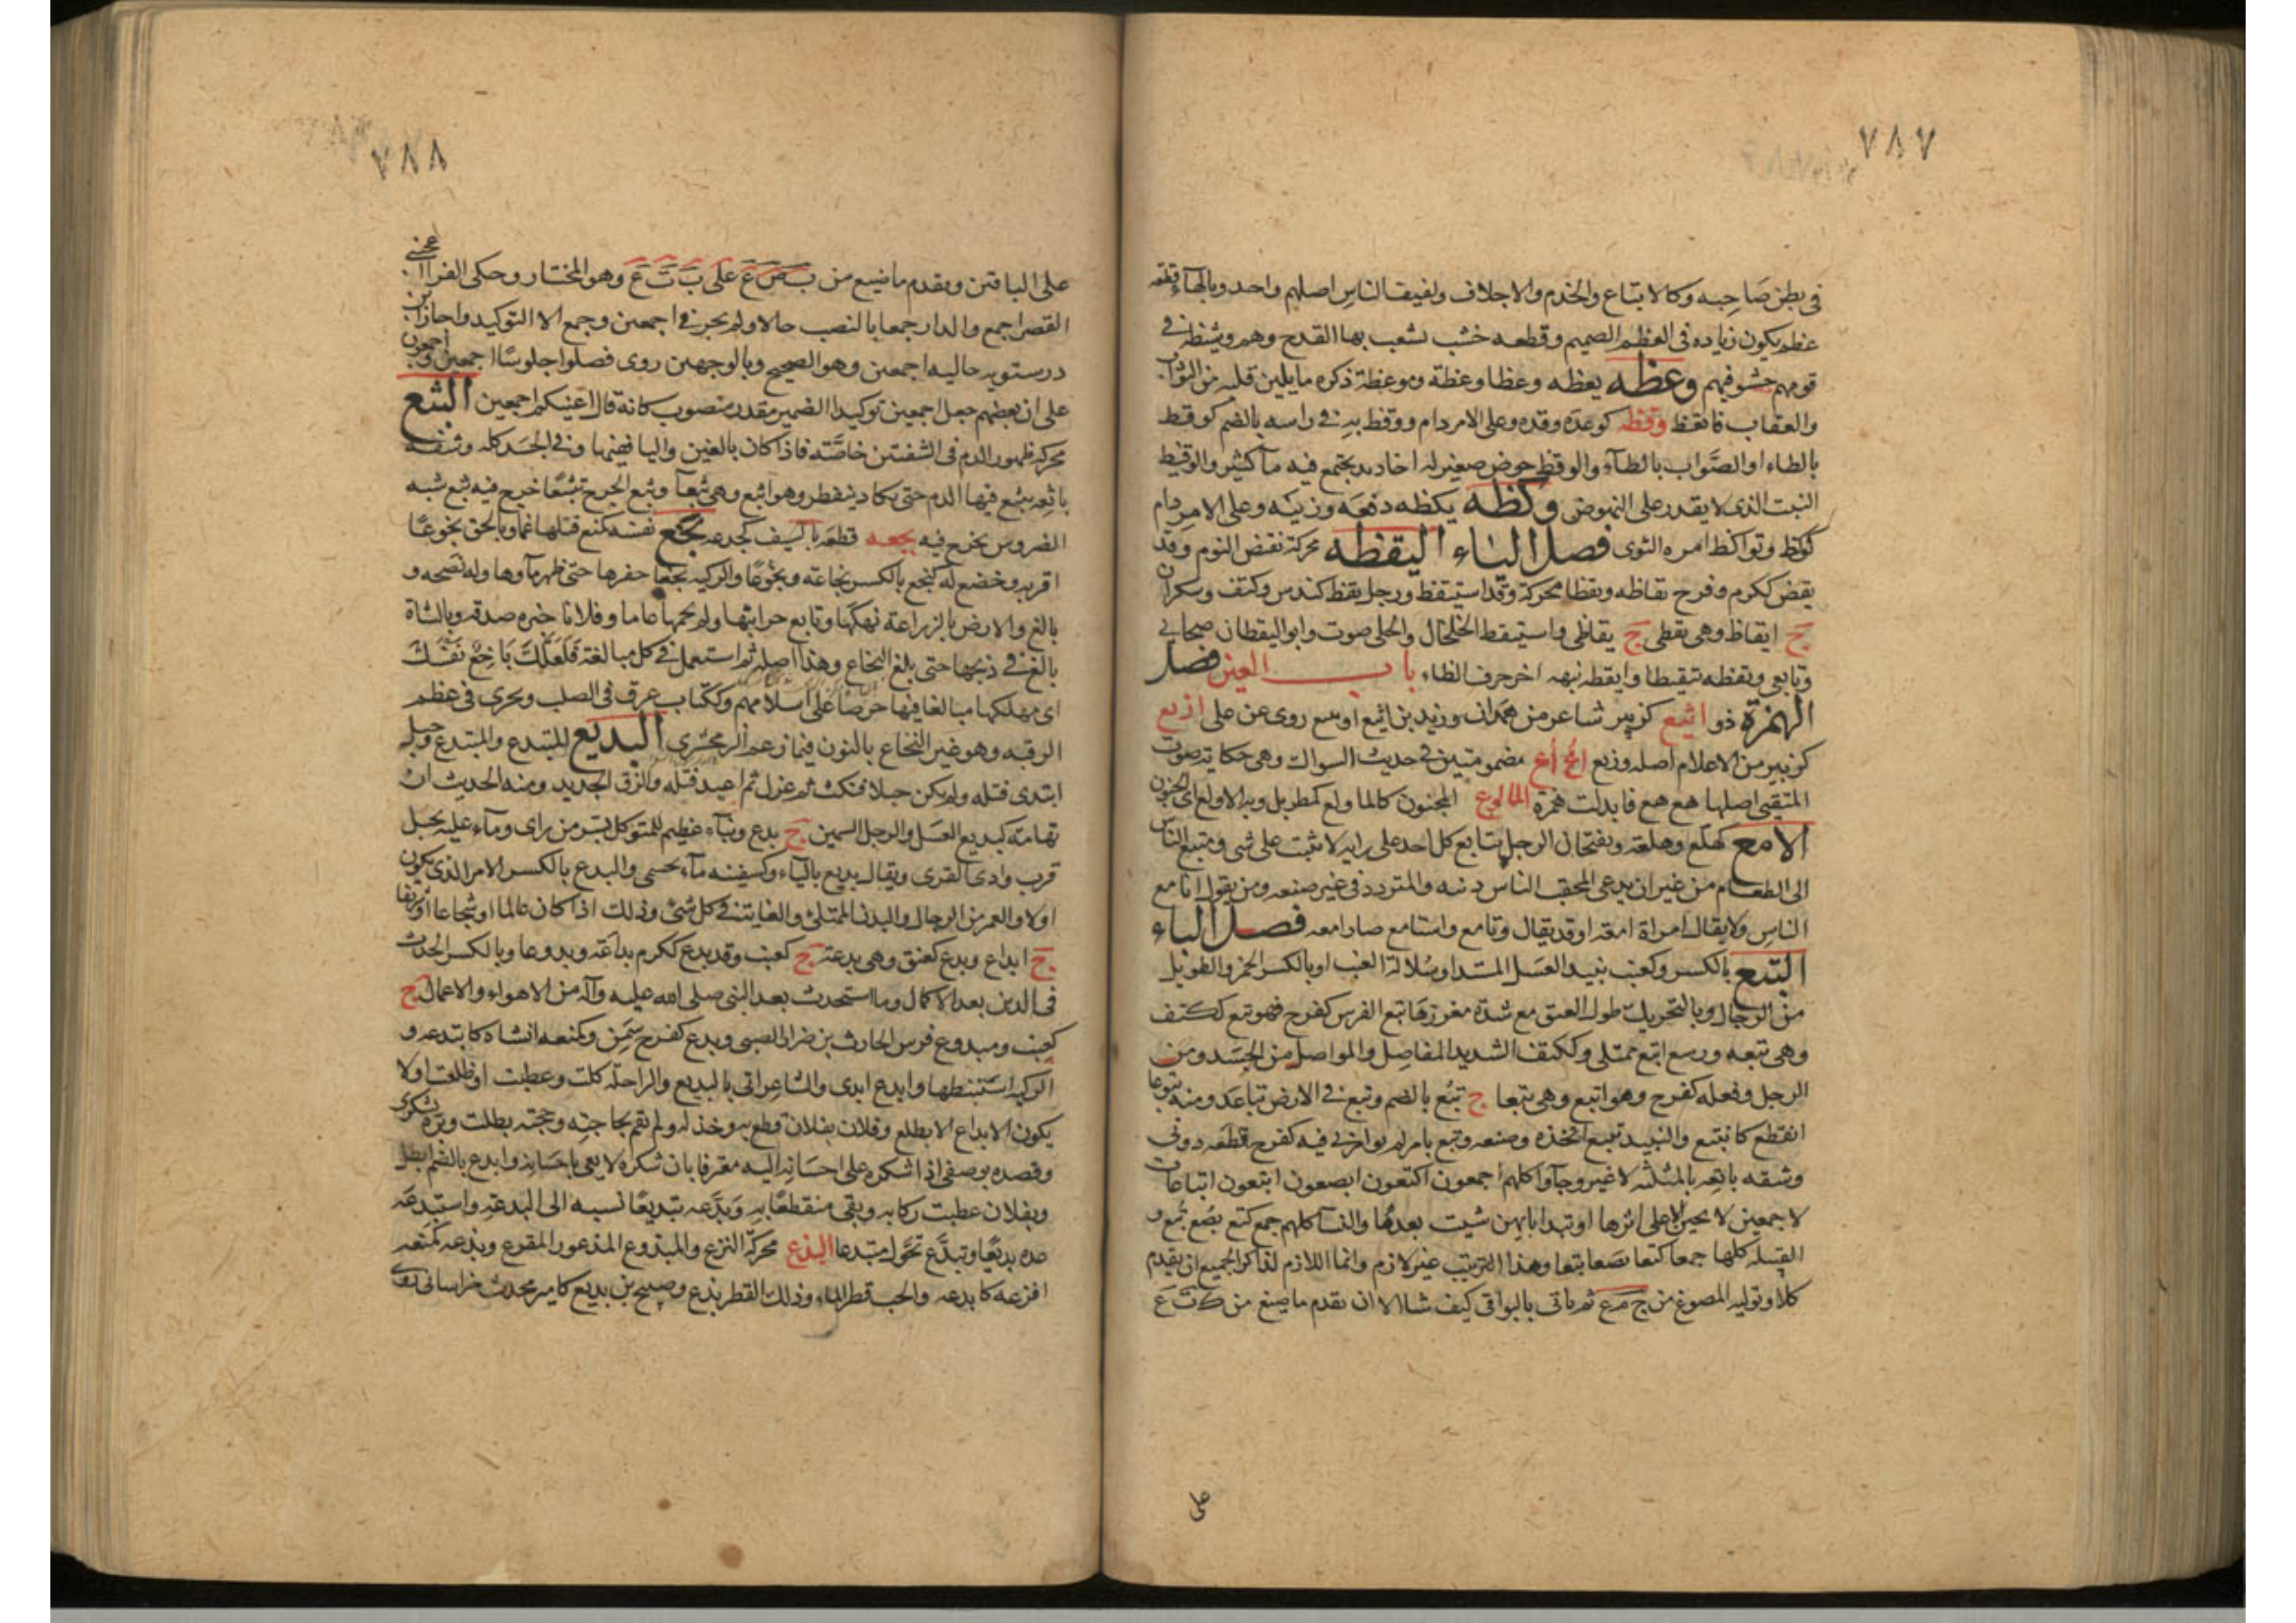 ٧٨٧
في بطن صاحبه وكالاتباع والخدم والاجلاف ولفيف الناس اصلهم واحد وبالهاء قطعة
عظم يكون زياده فى العظم الصميم وقطعه خشب يشعب بها القدح وهم وشيظة فى
قومهم حشو فيهم وعظه يعظه وعظا وعظة وموعظة ذكره مايلين قلبه من الثواب
والعقاب فاتعظ وقظه كوعده وقده وعلى الامر دام ووقظ به فى راسه بالضم كوقط
بالطاء او الصواب بالطاء والوقظ حوض صغير له اخاديد يجتمع فيه مآ كثير والوقيظ
النبت الذى لا يقدر على النهوض وكظه يكظه دفعه وزينه وعلى الامر دام
كوكظ وتواكظ امره التوى فصل الياء اليقظه محركة نقض النوم وقد
يقض ككرم وفرح يقاظه ويقظا محركة وقد استيقظ ورجل يقظ كندس وكتف وسكران
ج ايقاظ وهى يقظى ج يقاظى واستيقظ الخلخال والحلى صوت وابو اليقظان صحابي
وتابعى ويقظه تيقيظا وايقظه نبهه اخر حرف الظاء باب العين فصل
الهمزة ذو اثيع كزبير شاعر من همدان وزيد بن اثيع او يثيع روى عن على ازيع
كزبير من الاعلام اصله وزيع اع اع مضمومتين فى حديث السواك وهى حكاية صوت
المتقيئ اصلها هع هع فابدلت همزة المالوع المجنون كالماولع كمطربل وبه الاولع اى الجنون
الامع كهلع وهلعة ويفتحان الرجل يتابع كل احد على رايه لا يثبت على شى ومتبع الناس
الى الطعام من غير ان يدعى المحقب الناس دينه والمتردد فى غير صنعه ومن يقول انا مع
الناس ولا يقال امراة امعة او قد يقال وتامع واستامع صار امعه فصل الباء
البتع بالكسر وكعنب نبيد العسل المشتد او سلالة العنب او بالكسر الخمر والطويل
من الرجال وبالتحريك طول العنق مع شدة مغرزها بتع الفرس كفرح فهو بتع ككتف
وهى بتعه ورسع ابتع ممتلى وككتف الشديد المفاصل والمواصل من الجسد ومن
الرجل وفعله كفرح وهو ابتع وهى بتعا ج بتع بالضم وبتع فى الارض تباعد ومنه بتوعا
انقطع كانبتع والنبيد يبتع اتخذه وصنعه وبتع بامر لم يوامرنى فيه كفرح قطعه دونى
وشفه باتعه بالمثلثه لا غير وجآوا كلهم اجمعون اكتعون ابصعون ابتعون اتباعات
لاجمعين لا يجين الا على اثرها او تبدا بايهن شيت بعدها والنسا كلهم جمع كتع بصع بتع و
القبيله كلها جمعا كتعا بصعا بتعا وهذا الترتيب غير لازم وانما اللازم لذاكر الجميع ان يقدم
كلا ويوليه المصوغ من ج م ع ثم ياتى بالبواقى كيف شا الا ان تقدم ما صيغ من ك ت ع
على
٧٨٨
على الباقين وتقدم ما صيغ من ب ص ع على ب ت ع وهو المختار وحكى الفراء اعجبنى
القصر اجمع والدار جمعا بالنصب حالا ولم يجز فى اجمعين وجمع الا التوكيد واجاز ابن
درستويه حاليه اجمعين وهو الصحيح وبالوجهين روى فصلوا جلوسا اجمعين واجمعون
على ان بعضهم جعل اجمعين توكيدا لضمير مقدر منصوب كانه قال اعنيكم اجمعين البثع
محركة ظهور الدم فى الشفتين خاصة فاذا كان بالغين والياء فيهما وفى الجسد كله وشفة
باثعه يبثع فيها الدم حتى يكاد ينفطر وهو ابثع وهى بثعآ وبثع الجرح تبثيعا خرج فيه بثع شبه
الضروس يخرج فيه بجعه قطعه بالسيف كجدعه بخع نفسه كمنع قتلها غما وبالحق بخوعا
اقر به وخضع له كبخع بالكسر بخاعة وبخوعا والركيه بخعا حفرها حتى ظهر مآوها وله نصحه و
بالغ والارض بالزراعة نهكها وتابع حراثتها ولم يجمها عاما وفلانا خبره صدقه وبالشاة
بالغ فى ذبحها حتى بلغ البخاع وهذا اصله ثم استعمل فى كل مبالغة فلعلك باخع نفسك
اى مهلكها مبالغا فيها حرصا على اسلامهم وككتاب عرق فى الصلب ويجرى فى عظم
الرقبه وهو غير النخاع بالنون فيما زعم الزمخشرى البديع المبتدع والمبتدع وحبل
ابتدى فتله ولم يكن حبلا فنكث ثم غزل ثم اعيد فتله والزق الجديد ومنه الحديث ان
تهامة كبديع العسل والرجل السمين ج بدع وبنآء عظيم للمتوكل بسر من راى ومآء عليه نخل
قرب وادى القرى ويقال يديع بالياء وكسفينه مآء بحسمى والبدع بالكسر الامر الذى يكون
اولا والغمر من الرجال والبدن الممتلئ والغاية فى كل شئ وذلك اذا كان عالما او شجاعا او شريفا
ج ابداع وبدع كعنق وهى بدعة ج كعنب وقد بدع ككرم بداعة وبدوعا وبالكسر الحدث
فى الدين بعد الاكمال وما استحدث بعد النبى صلى الله عليه وآله من الاهواء والاعمال ج
كعنب ومبدوع فرس الحارث بن ضرار الضبى وبدع كفرح سمن وكمنعه انشاه كابتدعه و
الركيه استنبطها وابدع ابدى والشاعر اتى بالبديع والراحلة كلت وعطبت او ظلعت او لا
يكون الابداع الا بظلع وفلان بفلان قطع به وخذله ولم يقم بحاجته وحجته بطلت وبره بشكرى
وقصده بوصفى اذا شكره على احسانه اليه معترفا بان شكره لا يفى باحسانه وابدع بالضم ابطل
وبفلان عطبت ركابه وبقى منقطعا به وبدعه تبديعا نسبه الى البدعة واستبدعه
عده بديعا وتبدع تحول مبتدعا البذع محركة النزع والمبذوع المذعور المفزع وبذعه كمنعه
افزعه كابذعه والحب قطر الماء وذلك القطر بذع وصبيح بن بذيع كامير محدث خراسانى روى